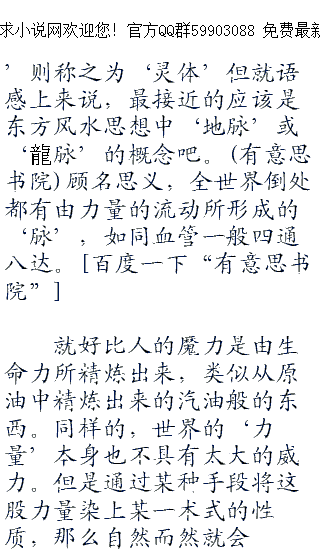 求小说网欢迎您！官方QQ群59903088 免费最新
’则称之为‘灵体’但就语
感上来说，最接近的应该是
东方风水思想中‘地脉’或
‘龍脉’的概念吧。(有意思
书院)顾名思义，全世界倒处
都有由力量的流动所形成的
‘脉’，如同血管一般四通
八达。[百度一下“有意思书
院”]
就好比人的魔力是由生
命力所精炼出来，类似从原
油中精炼出来的汽油般的东
西。同样的，世界的‘力
量’本身也不具有太大的威
力。但是通过某种手段将这
股力量染上某一术式的性
质，那么自然而然就会